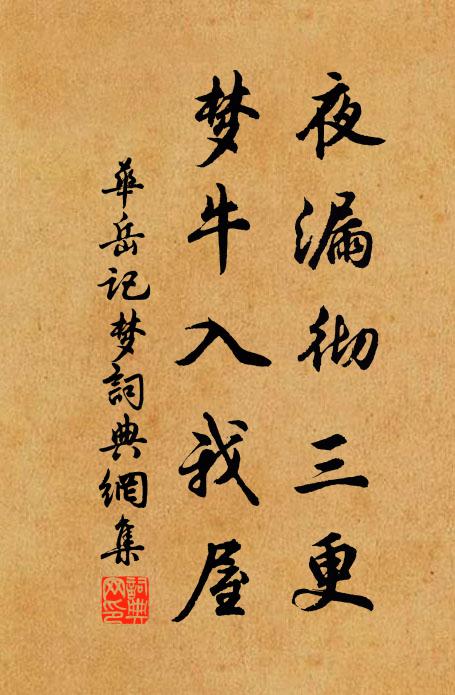 夜漏彻三更
梦牛入我屋
華岳记梦詞典網集
詞典网印